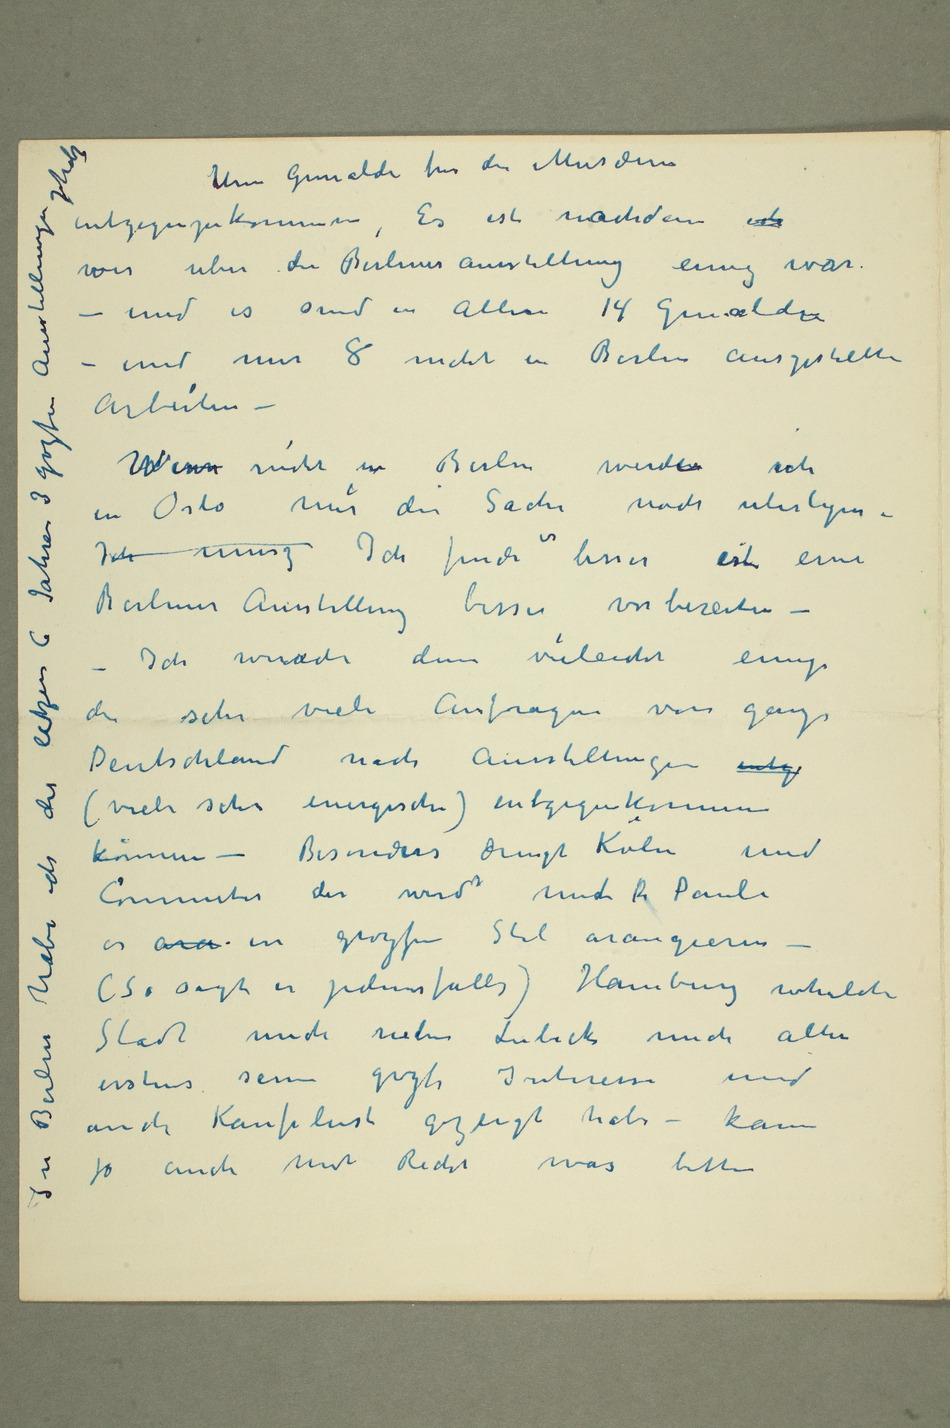 Um Gemälde für die Museen
entgegenzukommen, Es ist nachdem ich
wir uber die Berliner austellung einig war.
– und es sind in Allem 14 Gemälde
– und nur 8 nicht in Berlin ausgestellte
Arbeiten –
Wenn nicht in Berlin werde ich
in Oslo mir die Sache noch uberlegen –
Ich musz Ich finde es besser ist eine
Berliner Ausstellung besser vorbereiten –
– Ich werde dem vieleicht einige
der sehr viele Anfragen von ganze
Deutschland nach Ausstellungen entg
(viele sehr energische) entgegenkommen
können – Besonders drengt Köln und
Commeter der wird mich Dr Pauli
es ara in groszen Stil arangieren –
(So sagt er jedensfalls) Hamburg welche
Stadt mich neben Lubeck mich alter
erstens seine grozte Interesse und
auch Kauflust gezeigt habe – kann
ja auch mit Recht was bitten
In Berlin habe ich des letzen 6 Jahren 3 grozten Ausstellungen gehabt